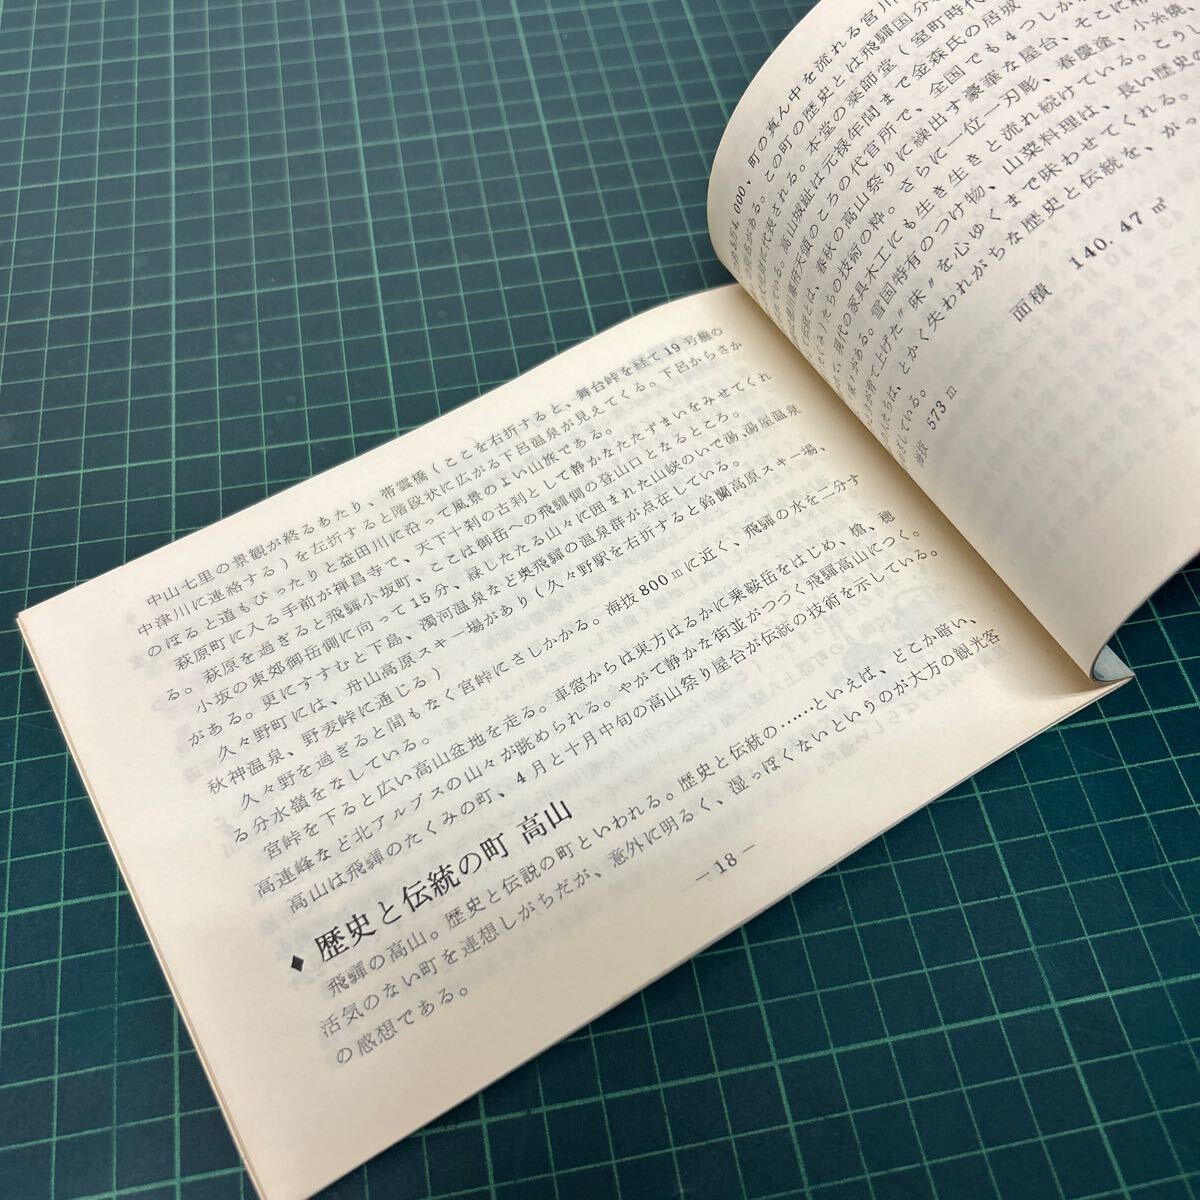 中山七里の景観が終るあたり、帯雲橋(ここを右折すると、舞台峠を経て19号線の
中津川に連絡する)を左折すると階段状に広がる下呂温泉が見えてくる。下呂からさか
のぼると道もぴったりと益田川に沿って風景のよい山旅である。
萩原町に入る手前が禅昌寺で、天下十刹の古刹として静かなたたずまいをみせてくれ
る。萩原を過ぎると飛驒小坂町、ここは御岳への飛驒側の登山口となるところ。
小坂の東郊御岳側に向って15分、緑したたる山々に囲まれた山峡のいで湯、湯屋温泉
がある。更にすすむと下島、濁河温泉など奥飛驒の温泉群が点在している。
久々野町には、舟山高原スキー場があり(久々野駅を右折すると鈴蘭高原スキー場、
秋神温泉、野麦峠に通じる)
久々野を過ぎると間もなく宮峠にさしかかる。海抜800mに近く、飛驒の水を二分す
る分水嶺をなしている。
宮峠を下ると広い高山盆地を走る。車窓からは東方はるかに乗鞍岳をはじめ、槍、穂
高連峰など北アルプスの山々が眺められる。やがて静かな街並がつづく飛驒高山につく。
高山は飛驒のたくみの町、4月と十月中旬の高山祭り屋台が伝統の技術を示している。
◆歴史と伝統の町 高山
飛驒の高山。歴史と伝説の町といわれる。歴史と伝統の……といえば、どこか暗い、
活気のない町を連想しがちだが、意外に明るく、湿っぽくないというのが大方の観光客
の感想である。
—18—
000、町の真ん中を流れる宮川
がある。この町の歴史とは飛驒国分
に代表される。本堂の薬師堂(室町時代
ている。高山城趾は元禄年間まで金森氏の居城
徳川幕府天領のころの代官所で、全国でも4つしか
伝統とは、春秋の高山祭りに繰出す豪華な屋台、そこに
たちの技術の粋。さらに一位一刃彫、春慶塗、小糸焼、
て、現代の家具木工にも生き生きと流れ続けている。こうし
がある。雪国特有のつけ物、山菜料理は、長い歴史の
が育て上げた〝味〟を心ゆくまで味わせてくれる。
たちは、とかく失われがちな歴史と伝統を、がっ
している。
海抜 573m
面積 140.47㎢